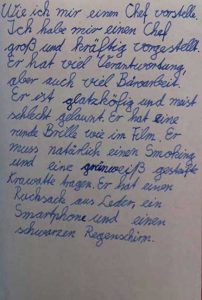 Wie ich mir einen Chef vorstelle.
Ich habe mir einen Chef
groß und kräftig vorgestellt.
Er hat viel Verantwortung,
aber auch viel Büroarbeit.
Er ist glatzköpfig und meist
schlecht gelaunt. Er hat eine
runde Brille wie im Film. Er
muss natürlich einen Smoking
und eine grünweiß gestreifte
Krawatte tragen. Er hat einen
Rucksack aus Leder, ein
Smartphone und einen
schwarzen Regenschirm.